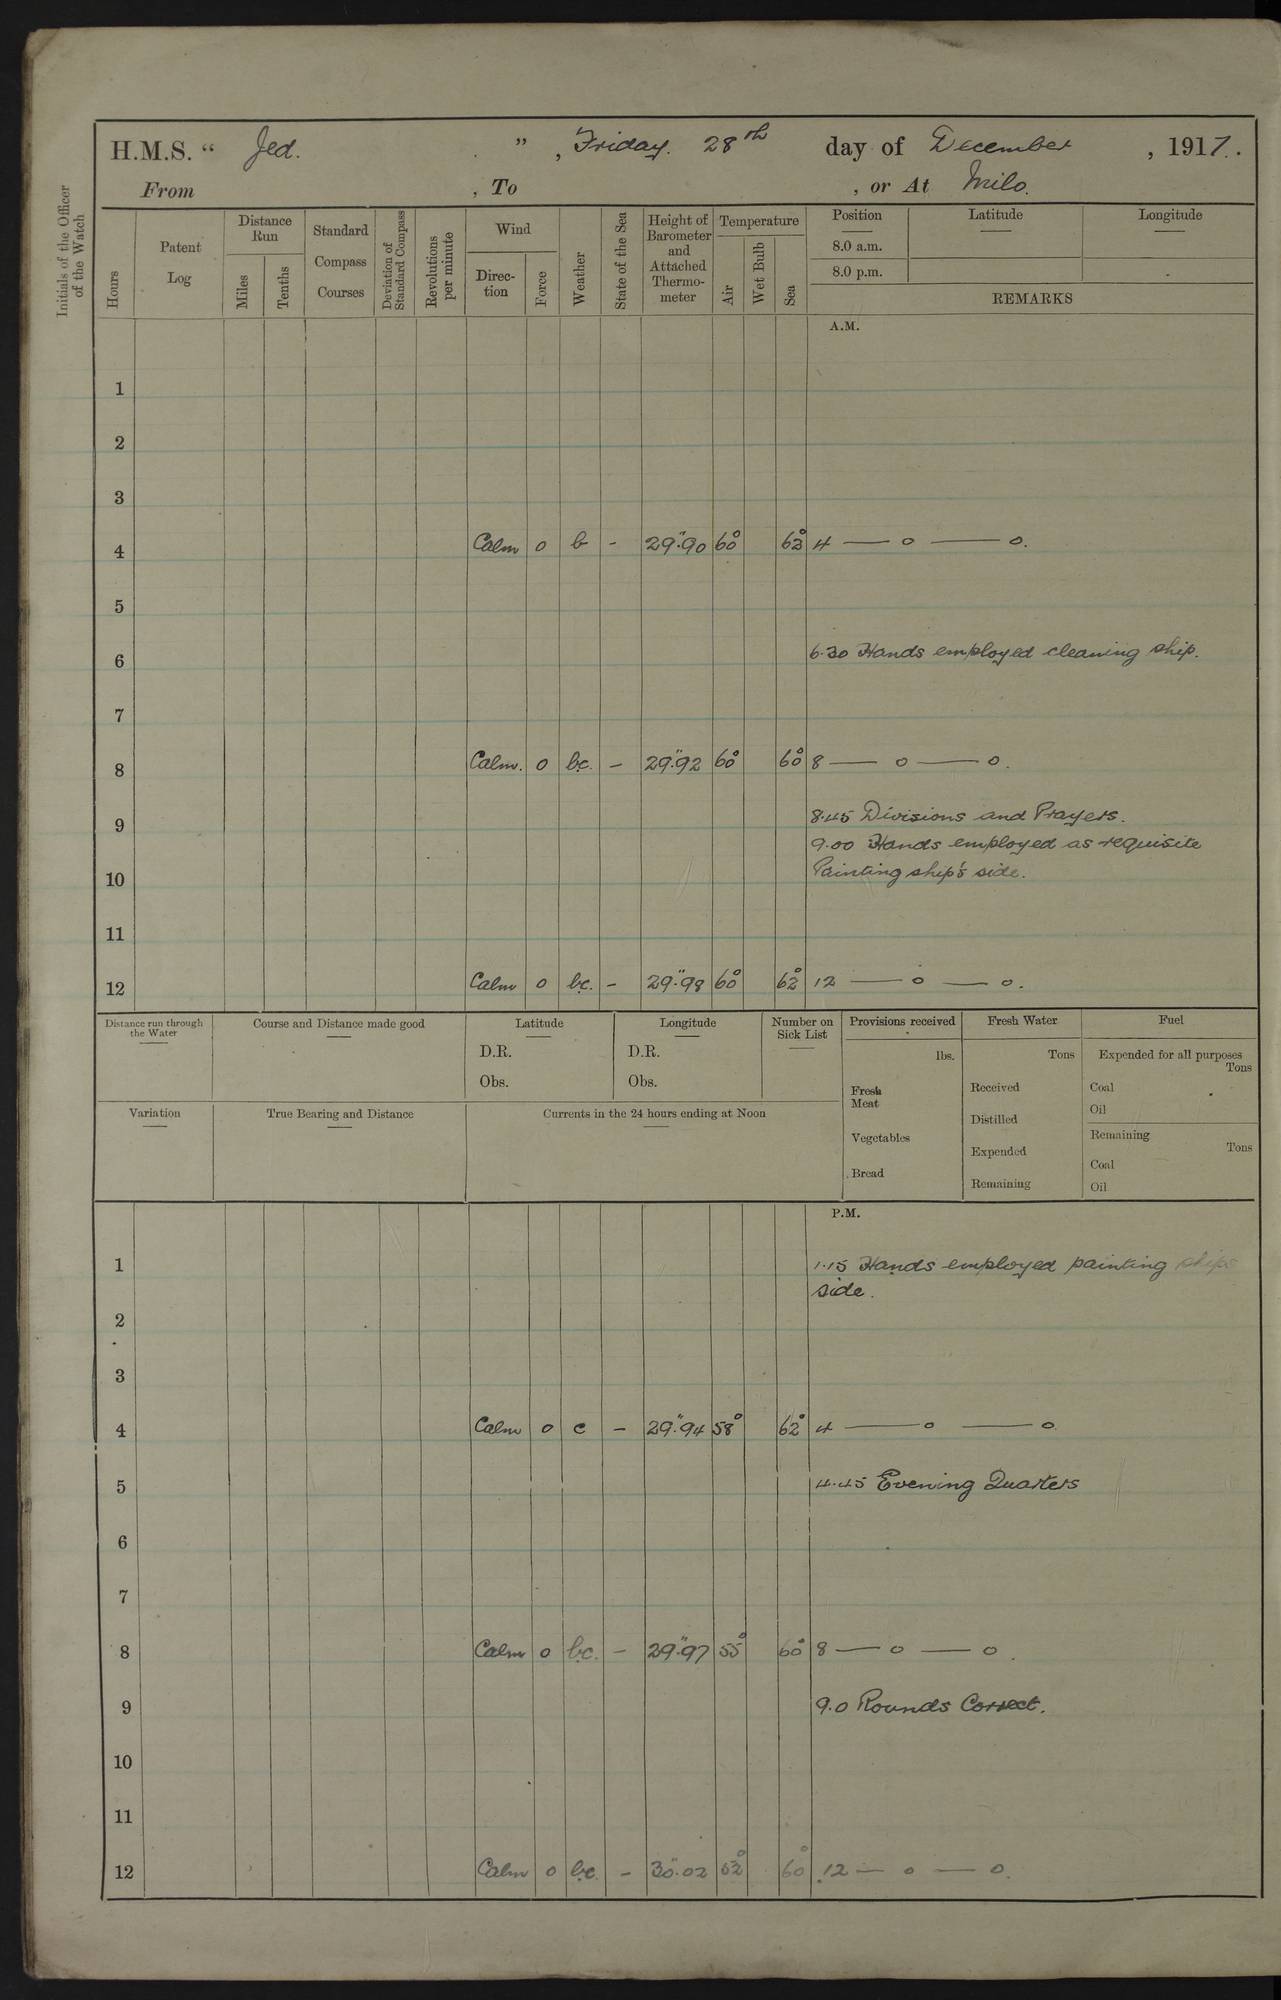 H.M.S. " Jed. " , Friday. 28th day of December , 1917.
From , To , or At Milo.
Initials of the Officer of the Watch
Hours
Patent Log
Distance Run
Miles
Tenths
Standard Compass Courses
Deviation of Standard Compass
Revolutions per minute
Wind
Direc- tion
Force
Weather
State of the Sea
Height of Barometer and Attached Thermo- meter
Temperature
Air
Wet Bulb
Sea
Position
Latitude
Longitude
8.0 a.m.
8.0 p.m.
REMARKS
A.M.
1
2
3
4 Calm 0 b - 29".90 60° 62° 4 — o — o.
5
6 6.30 Hands employed cleaning ship.
7
8 Calm. 0 b.c. - 29".92 60° 60° 8 — o — o.
9 8.45 Divisions and Prayers.
9.00 Hands employed as requisite
10 Painting ship's side.
11
12 Calm 0 b.c. - 29".98 60° 62° 12 — o — o.
Distance run through the Water
Course and Distance made good
Latitude
D.R.
Obs.
Longitude
D.R.
Obs.
Number on Sick List
Provisions received
lbs.
Fresh Meat
Vegetables
Bread
Fresh Water
Tons
Received
Distilled
Expended
Remaining
Fuel
Expended for all purposes
Tons
Coal
Oil
Remaining
Tons
Coal
Oil
Variation
True Bearing and Distance
Currents in the 24 hours ending at Noon
P.M.
1 1.15 Hands employed painting ships
side.
2
3
4 Calm 0 c - 29".94 58° 62° 4 — o — o.
5 4.45 Evening Quarters
6
7
8 Calm 0 b.c. - 29".97 55° 60° 8 — o — o.
9 9.0 Rounds Correct.
10
11
12 Calm 0 b.c. - 30".02 52° 60° 12 — o — o.